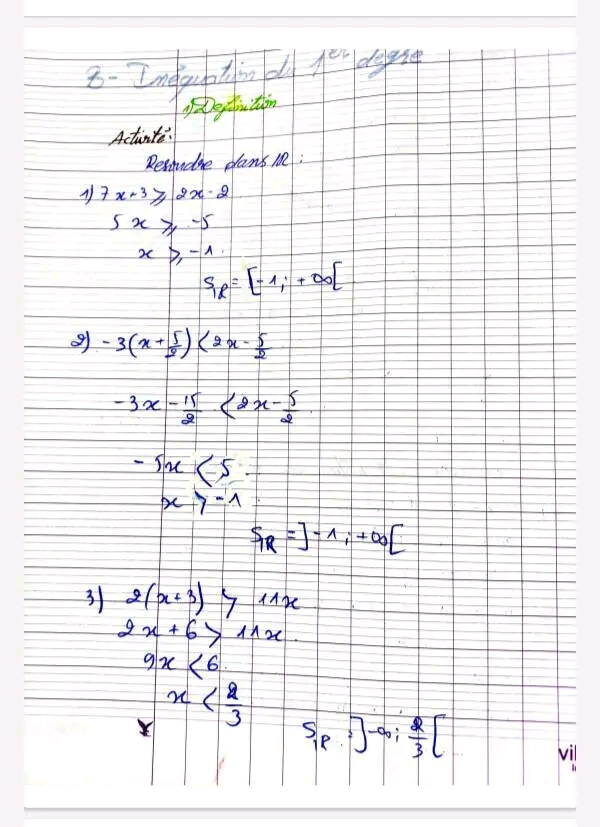 B- Inéquation du 1er degre
1) Definition
Activité:
Resoudre dans IR :
1) 7x+3 ⩾ 2x-2
5x ⩾ -5
x ⩾ -1.
S_IR = [-1; +∞[
2) -3(x+5/2) < 2x-5/2
-3x-15/2 < 2x-5/2
-5x < 5
x > -1
S_IR = ]-1; +∞[
3) 2(x+3) > 11x
2x+6 > 11x
9x < 6
x < 2/3
S_IR = ]-∞; 2/3[